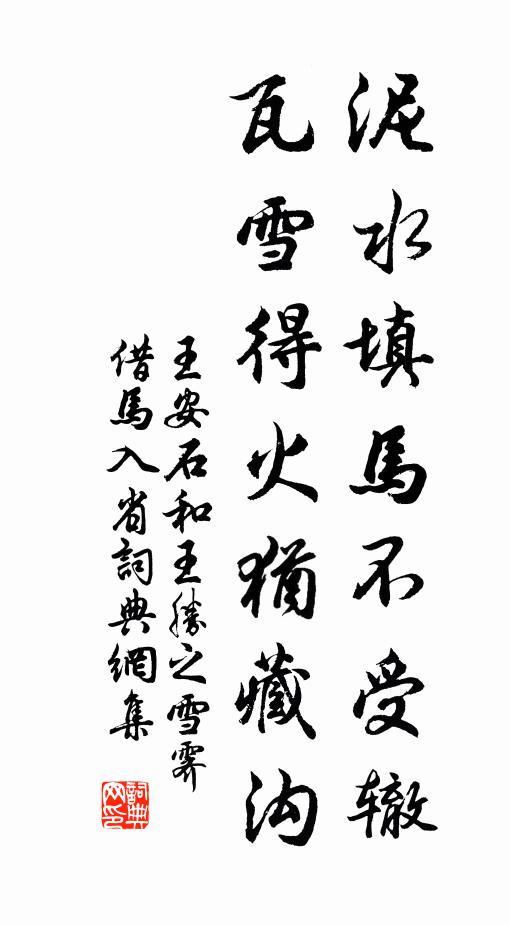 泥水填馬不受辙
瓦雪得火猶藏沟
王安石和王勝之雪霽
借馬入省詞典網集
詞典网印